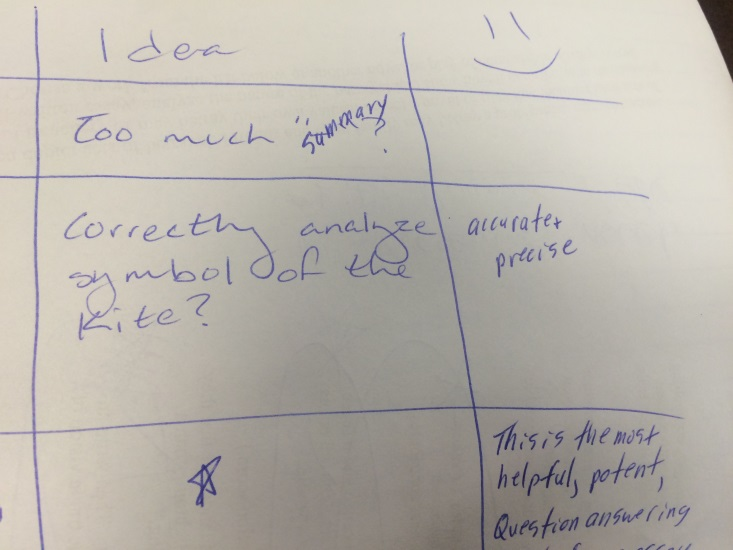 Idea
Too much "summary
?
Correctly analyze
symbol of the
Kite?
accurate+
precise
This is the most
helpful, potent,
Question answering